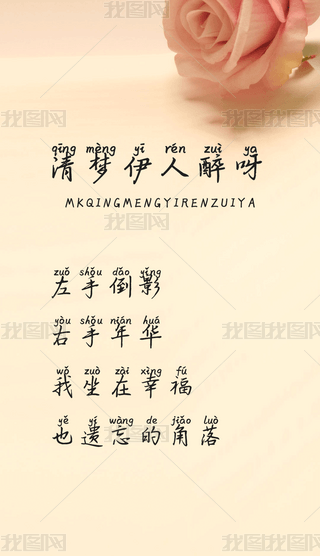 qīng mèng yī rén zuì ya
清梦伊人醉呀
MKQINGMENGYIRENZUIYA
zuǒ shǒu dào yǐng
左手倒影
yòu shǒu nián huá
右手年华
wǒ zuò zài xìng fú
我坐在幸福
yě yí wàng de jiǎo luò
也遗忘的角落
我图网